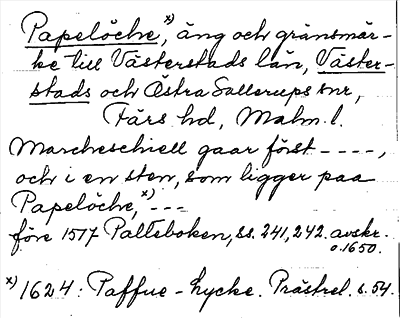 Papelöche,ˣ⁾ äng och gränsmär-
ke till Västerstads län, Väster-
stads och Östra Sallerups snr,
Färs hd, Malm. l.
Marcheschiell gaar först ----,
och i en sten, som ligger paa
Papelöche,ˣ⁾ ---
före 1517 Palteboken, ss. 241, 242. avskr.
o. 1650.
ˣ⁾ 1624: Paffue-Lycke. Prästrel. s. 54.